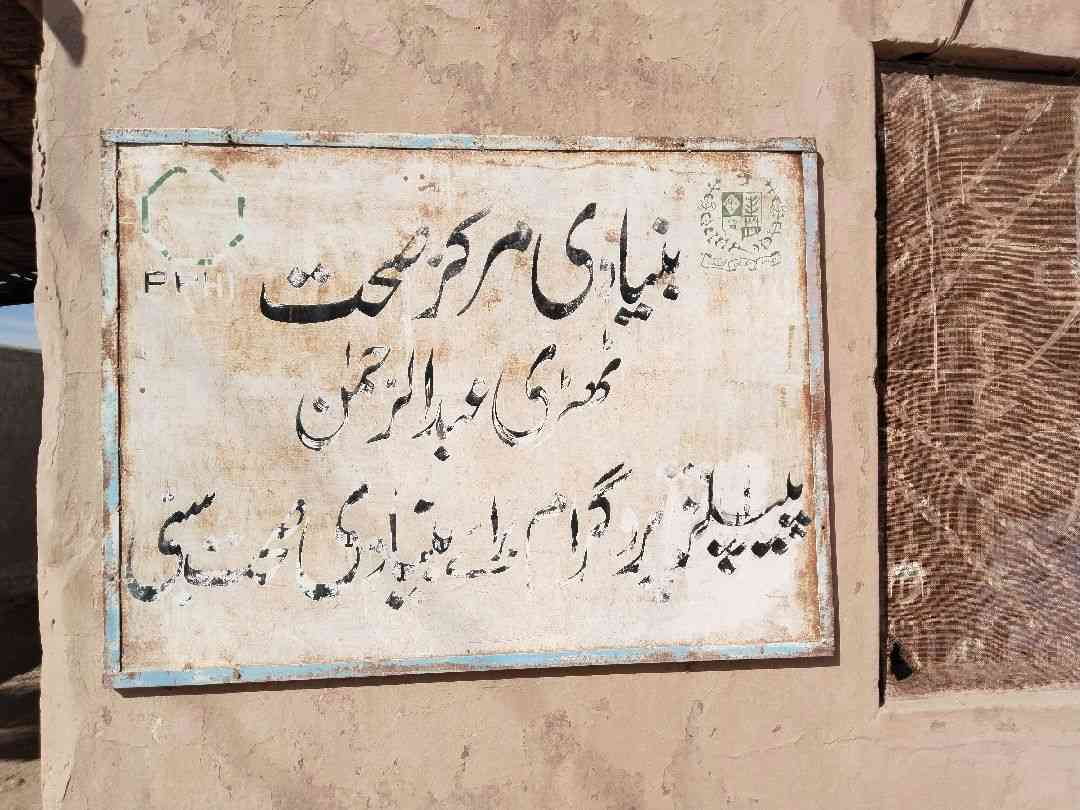 بنیادی مرکز صحت
کھڑی عبدالرحمٰن
پیپلز پروگرام برائے بنیادی صحت سبی
PPHI